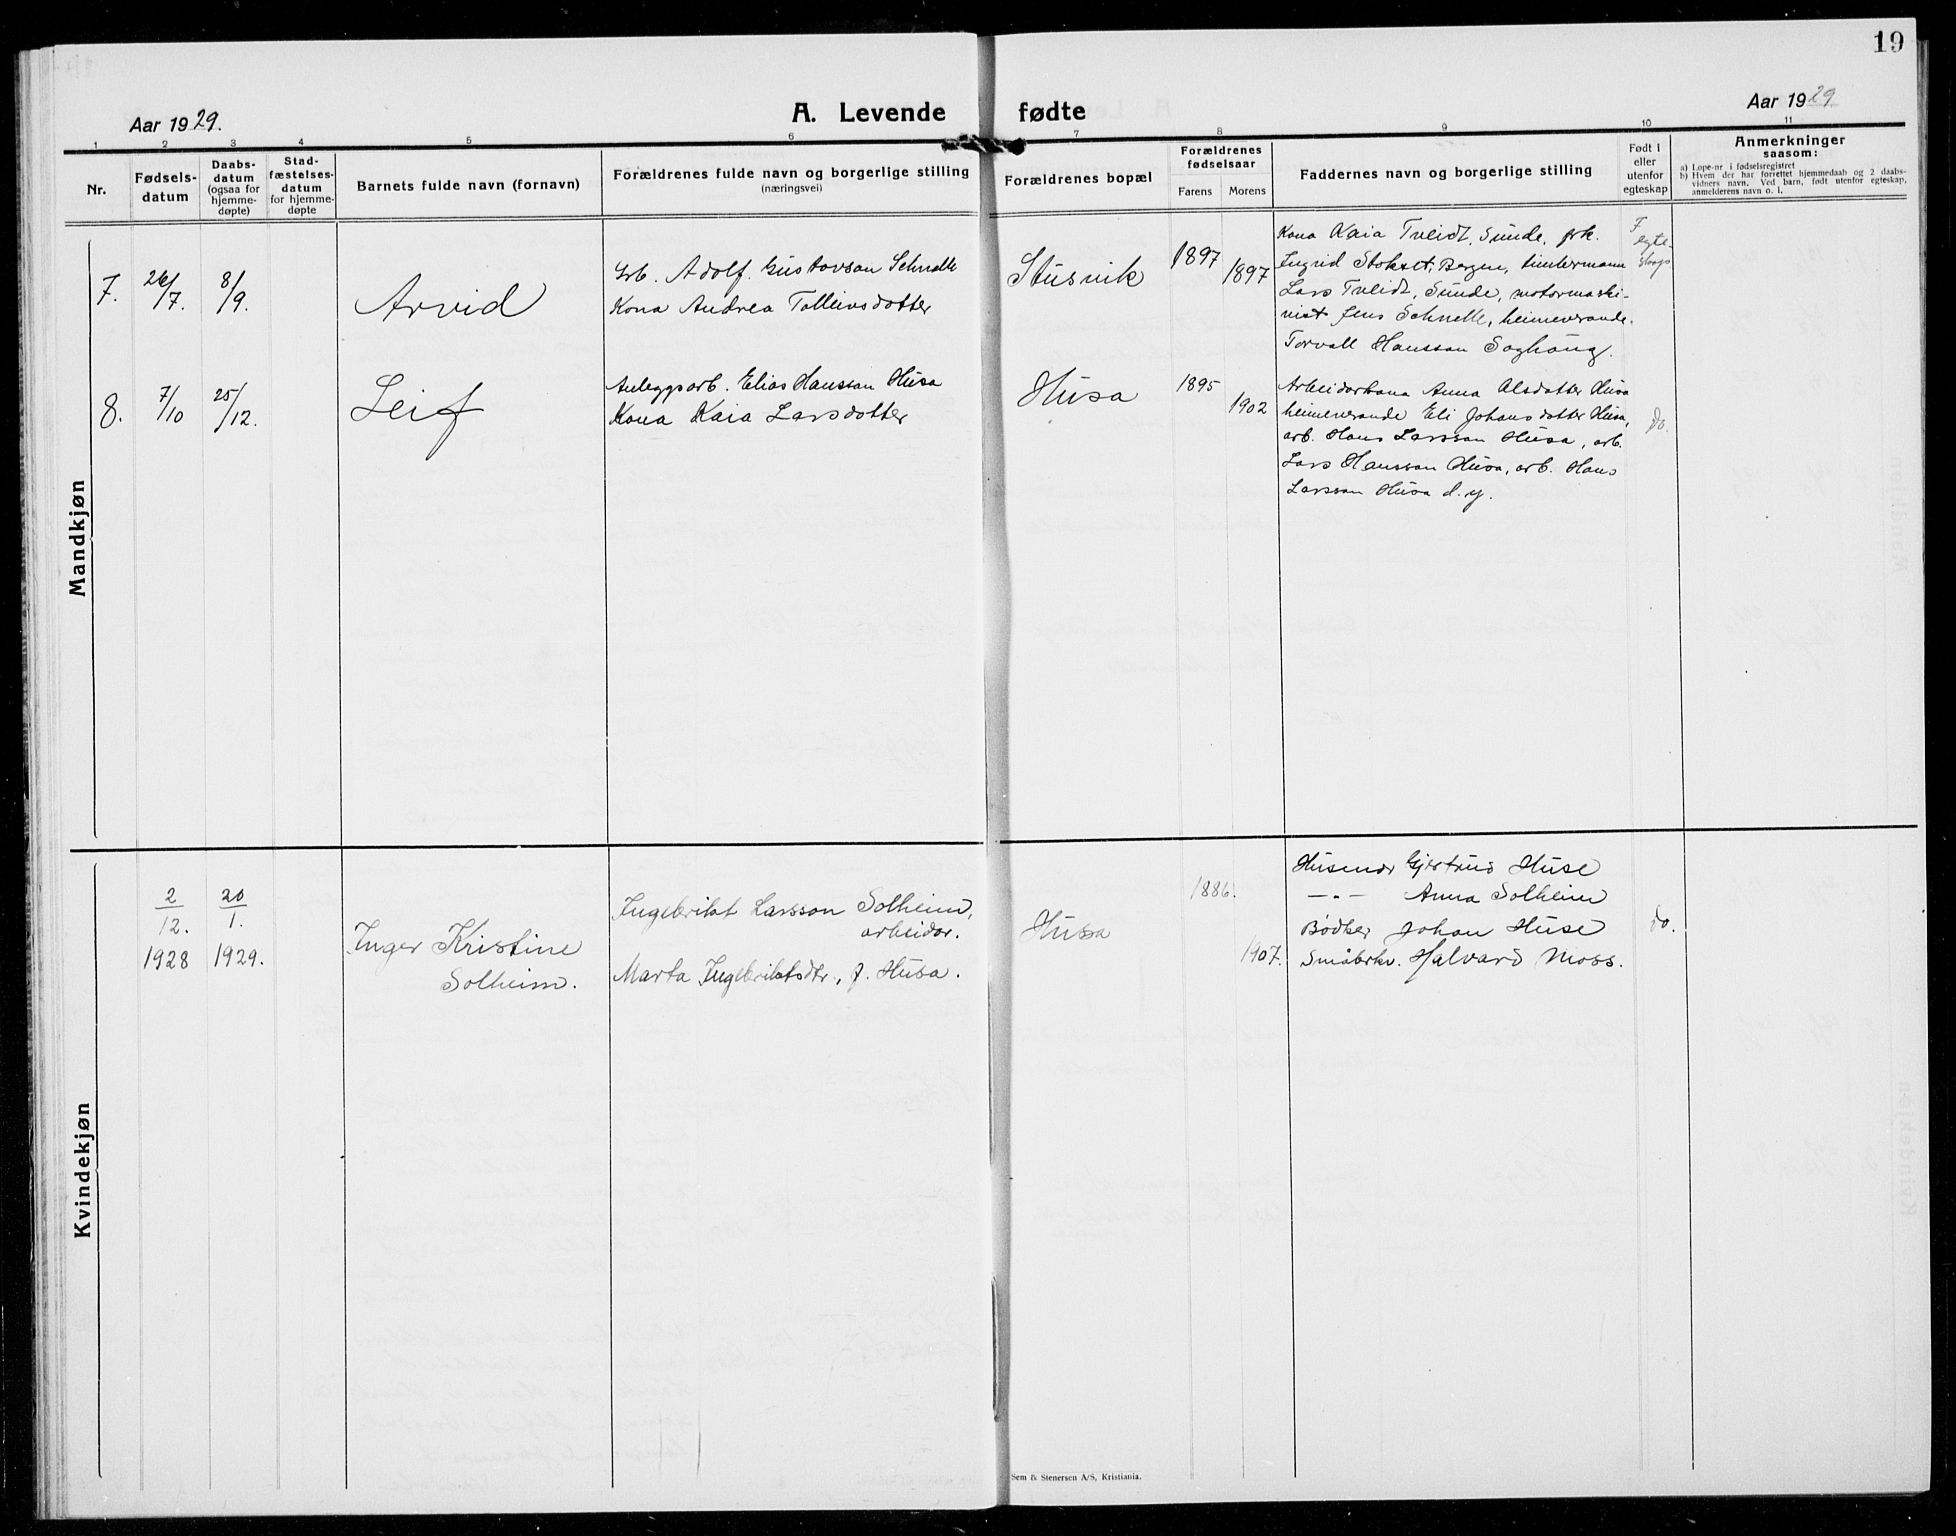 19
Aar 1929.
A. Levende fødte
Aar 1929
1 2 3 4 5 6 7 8 9 10 11
Nr.
Fødsels-
datum
Daabs-
datum
(ogsaa for
hjemme-
døpte)
Stad-
fæstelses-
datum
for hjemme-
døpte
Barnets fulde navn (fornavn)
Forældrenes fulde navn og borgerlige stilling
(næringsvei)
Forældrenes bopæl
Forældrenes
fødselsaar
Farens Morens
Faddernes navn og borgerlige stilling
Født i
eller
utenfor
egteskap
Anmerkninger
saasom:
a) Løpe-nr. i fødselsregistret
b) Hvem der har forrettet hjemmedaab og 2 daabs-
vidners navn. Ved barn, født utenfor egteskap,
anmelderens navn o. l.
Mandkjøn
7.
26/7.
8/9.
Arvid
Arb. Adolf Gustavson Schnelle
Kona Andrea Tolleivsdotter
Stusvik
1897
1897
Kona Kaia Tveidt, Sunde, frk.
Ingrid Stokset, Bergen, timbermann
Lars Tveidt, Sunde, motormaski-
nist Jens Schnelle, heimeverande
Torvall Hansson
F
egte-
skap
8.
7/10
25/12.
Leif
Anleggsarb. Elias Hansson Husa
Kona Kaia Larsdotter
Husa
1895
1902
Arbeidarkona Anna Olsdotter Husa
heimeverande Eli Johansdotter Husa,
arb. Hans Larsson Husa, arb.
Lars Hansson Husa, arb. Hans
Larsson Husa d.y.
do.
Kvindekjøn
2/12.
1928
20/1.
1929.
Inger Kristine
Solheim.
Ingebrikt Larsson Solheim,
arbeidar.
Marta Ingebriktsdtr, f. Husa.
Husa
1886.
1907.
Husmor Gjertrud Huse
—"— Anna Solheim
Bødker Johan Huse
Småbrkv. Halvard Moss.
do.
Sem & Stenersen A/S, Kristiania.